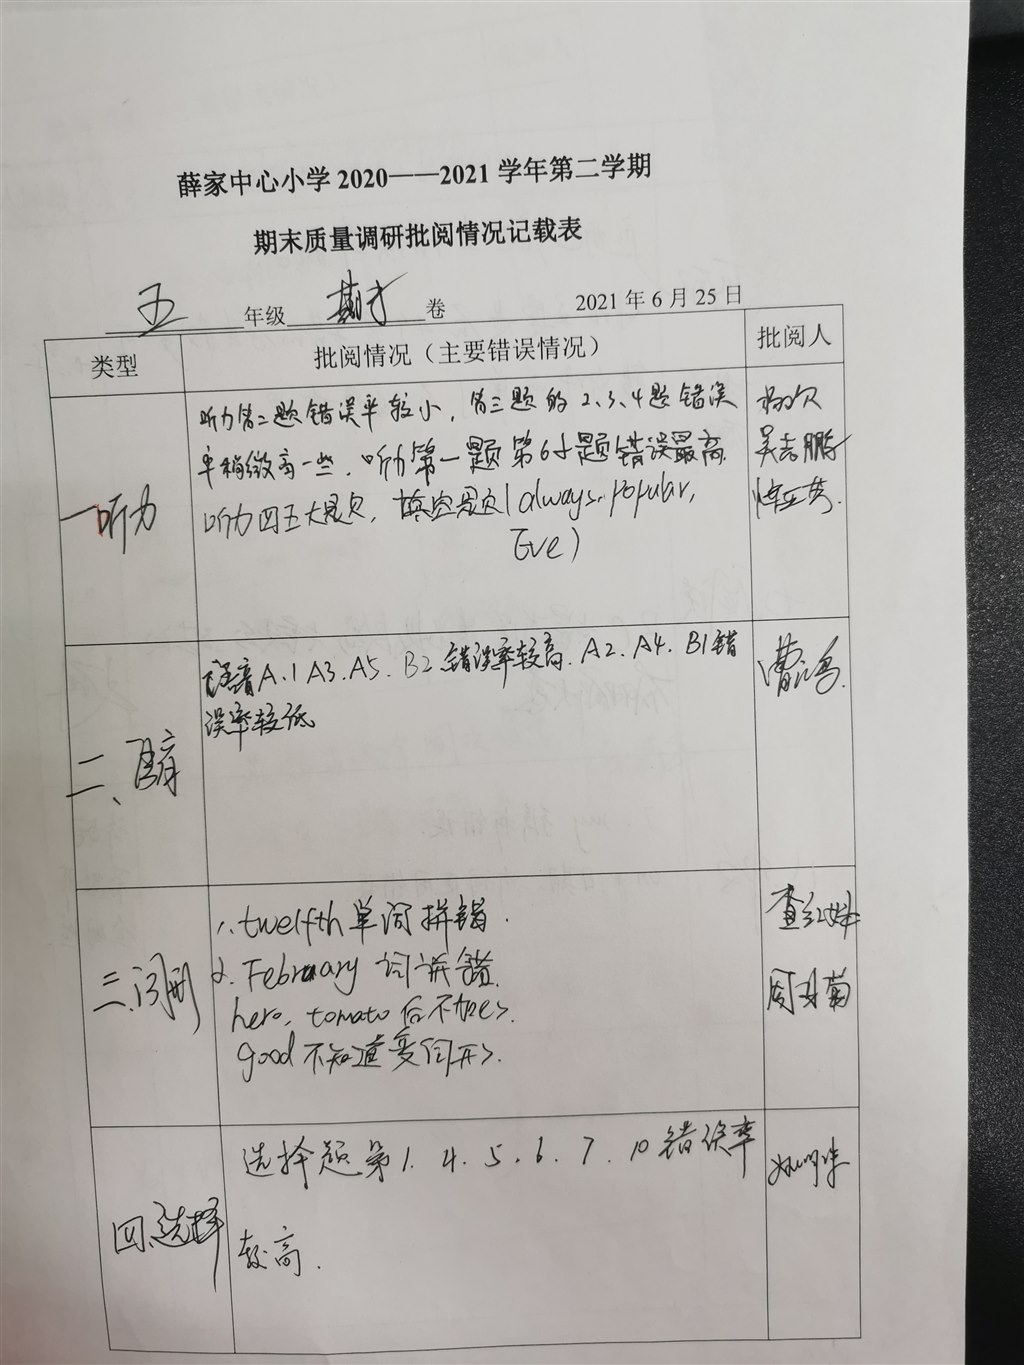 薛家中心小学2020——2021学年第二学期
期末质量调研批阅情况记载表
五 年级 期末 卷 2021年6月25日
类型 批阅情况（主要错误情况） 批阅人
听力第二题错误率较小，第三题的2、3、4题错误
率稍微高一些，听力第一题第6小题错误最高
听力四五大题 填空题 (always popular,
Eve)
一 听力
吴志鹏
语音A.1 A3. A5. B2 错误率较高. A2. A4. B1错
误率较低
二、语音
1. twelfth 单词拼错.
2. February 词拼错.
hero, tomato 后不加es.
good 不知道变何形式.
三、词形
查红娣
周建菊
选择题第1. 4. 5. 6. 7. 10错误率
较高.
四.选择